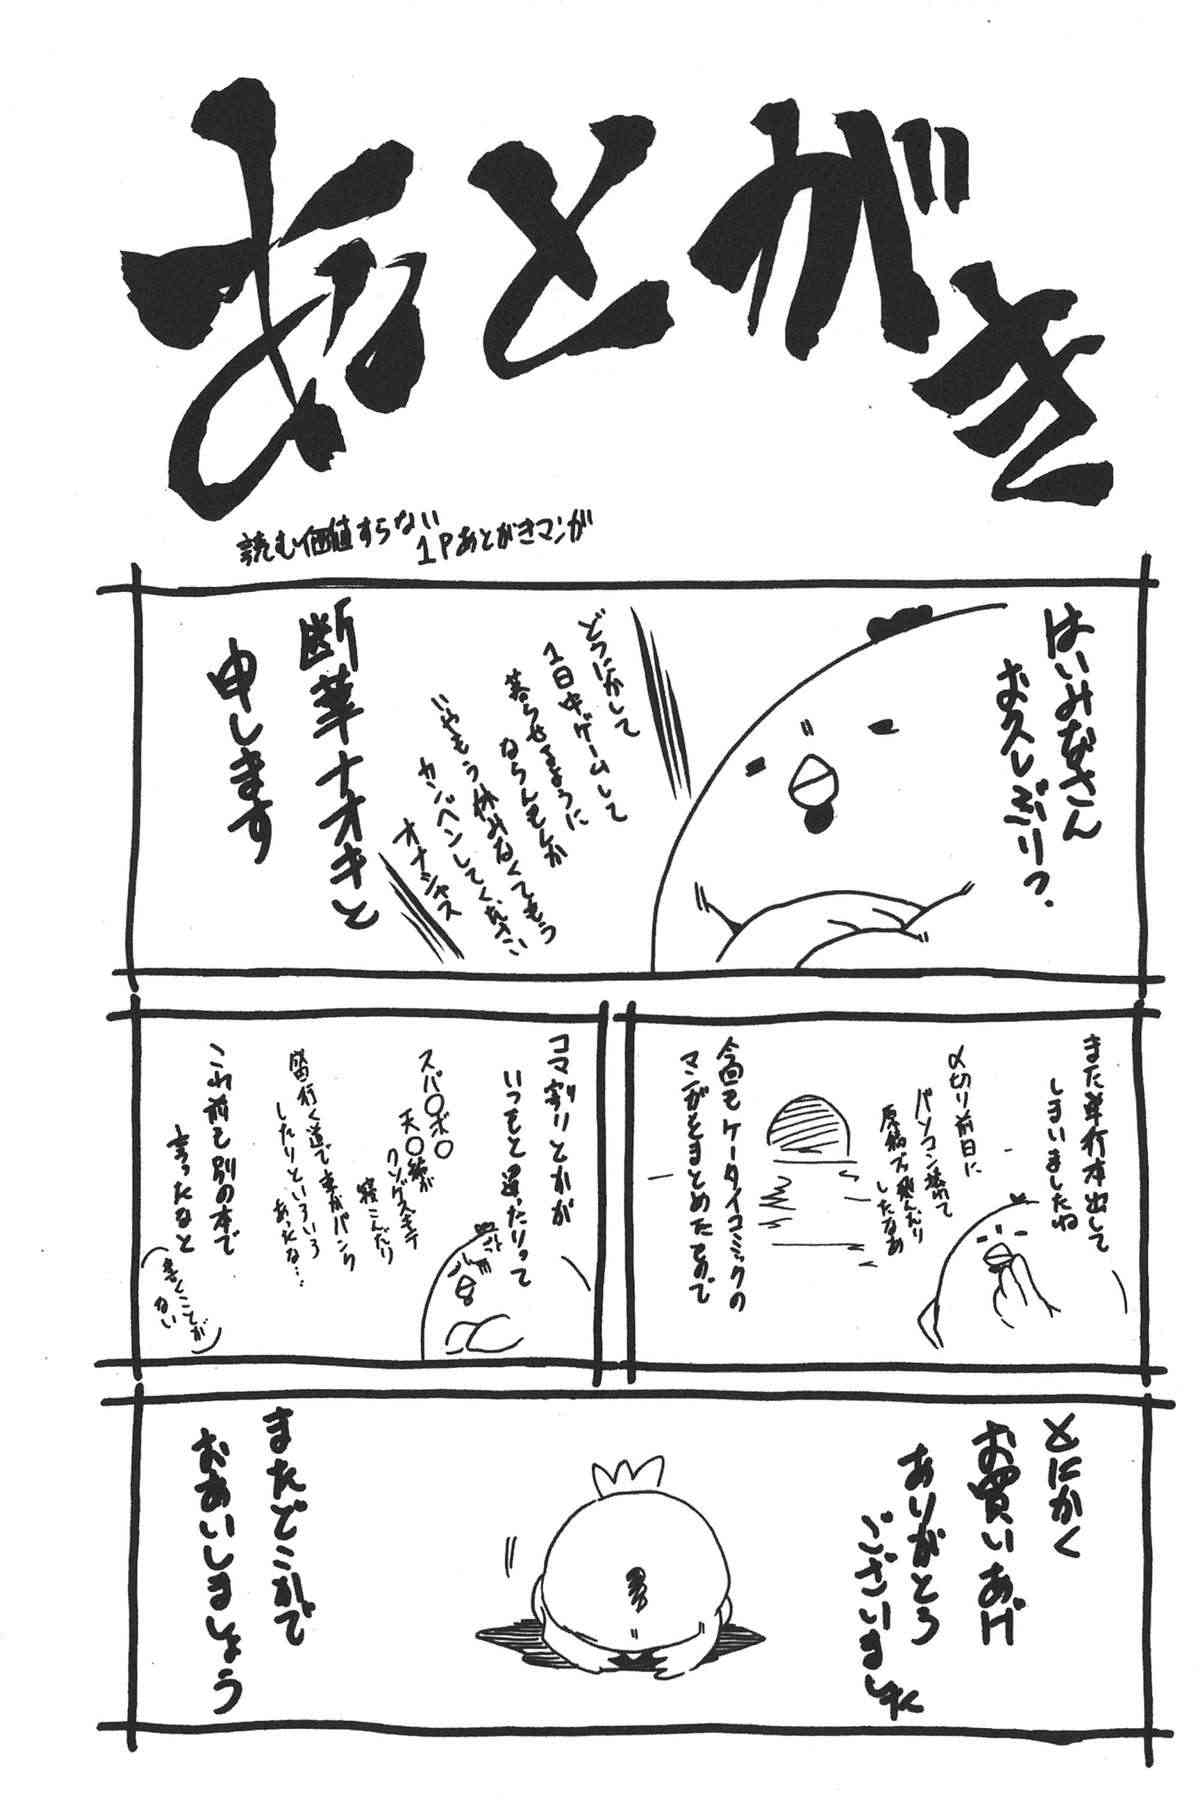 あとがき
読む価値すらない
1Pあとがきマンガ
はいみなさん
お久しぶりっ。
どうにかして
1日中ゲームして
暮らせるように
ならんもんか
いやもう休みなくてもう
カンベンしてください
オナシャス
断華ナオキと
申します
また単行本出して
しまいましたね
〆切り前日に
パソコン壊れて
原稿ブッ飛んだり
したなあ
今回もケータイコミックの
マンガをまとめたもので
コマ割りとかが
いつもと違ったりって
スパ○ボ○
天○編が
クソゲスギテ
寝こんだり
盛岡行く道で車がパンク
したりといろいろ
あったな…
これ前も別の本で
言ったなと
(書くことが
ない)
とにかく
お買いあげ
ありがとう
ございました
またどこかで
おあいしましょう